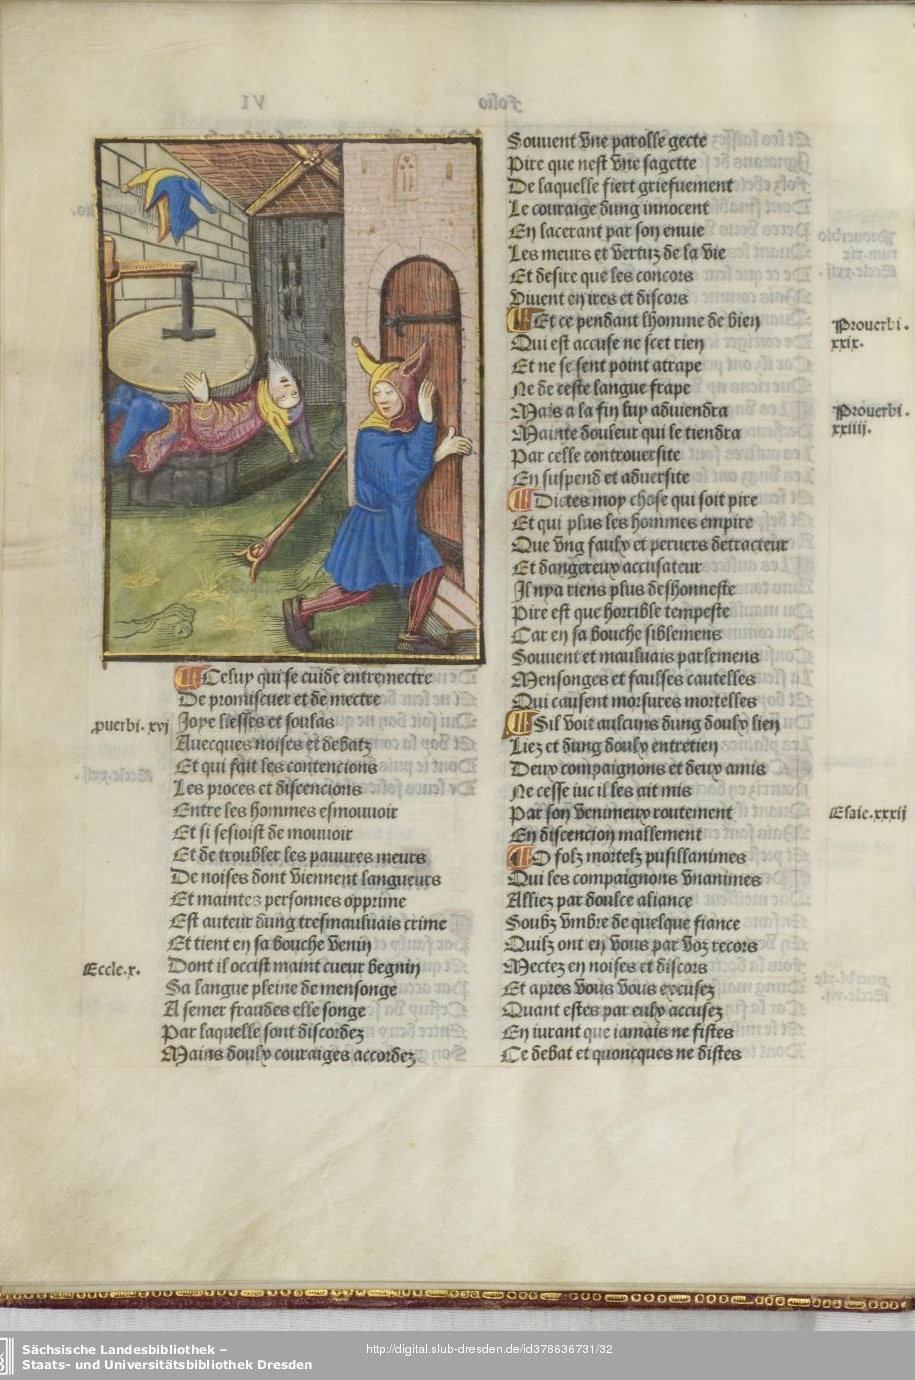 Celuy qui se cuide entremectre
De promiscuer et de mectre
puerbi. xvj
Joye liesses et soulas
Auecques noises et debatz
Et qui fait les contencions
Les proces et discencions
Entre les hommes esmouuoir
Et si sesioist de mouuoir
Et de troubler les pauures meurs
De noises dont viennent langueurs
Et maintes personnes opprime
Est auteur dung tresmauluais crime
Et tient en sa bouche venin
Eccle. x.
Dont il occist maint cueur begnin
Sa langue pleine de mensonge
A semer fraudes elle songe
Par laquelle sont discordez
Mains doulx couraiges accordez
Souuent vne parolle gecte
Pire que nest vne sagette
De laquelle fiert griefuement
Le couraige dung innocent
En lacerant par son enuie
Les meurs et vertuz de la vie
Et desire que les concors
Viuent en ires et discors
Et ce pendant lhomme de bien
Prouerbi.
Qui est accuse ne scet rien
xxix.
Et ne se sent point atrape
Ne de ceste langue frape
Mais a la fin luy aduiendra
Prouerbi.
Mainte douleur qui le tiendra
xxiiij.
Par celle controuersite
En suspend et aduersite
Dictes moy chose qui soit pire
Et qui plus les hommes empire
Que vng faulx et peruers detracteur
Et dangereux accusateur
Il nya riens plus deshonneste
Pire est que horrible tempeste
Car en sa bouche siblemens
Souuent et mauluais parlemens
Mensonges et faulses cautelles
Qui causent morsures mortelles
Sil voit aulcuns dung doulx lien
Liez et dung doulx entretien
Deux compaignons et deux amis
Ne cesse iuc il les ait mis
Par son venimeux routement
Esaie. xxxij
En discencion mallement
O folz mortelz pusillanimes
Qui les compaignons vnanimes
Alliez par doulce aliance
Soubz vmbre de quelque fiance
Quilz ont en vous par voz recors
Mectez en noises et discors
Et apres vous vous excusez
Quant estes par eulx accusez
En iurant que iamais ne fistes
Ce debat et quoncques ne distes
Sächsische Landesbibliothek –
Staats- und Universitätsbibliothek Dresden
http://digital.slub-dresden.de/id378636731/32